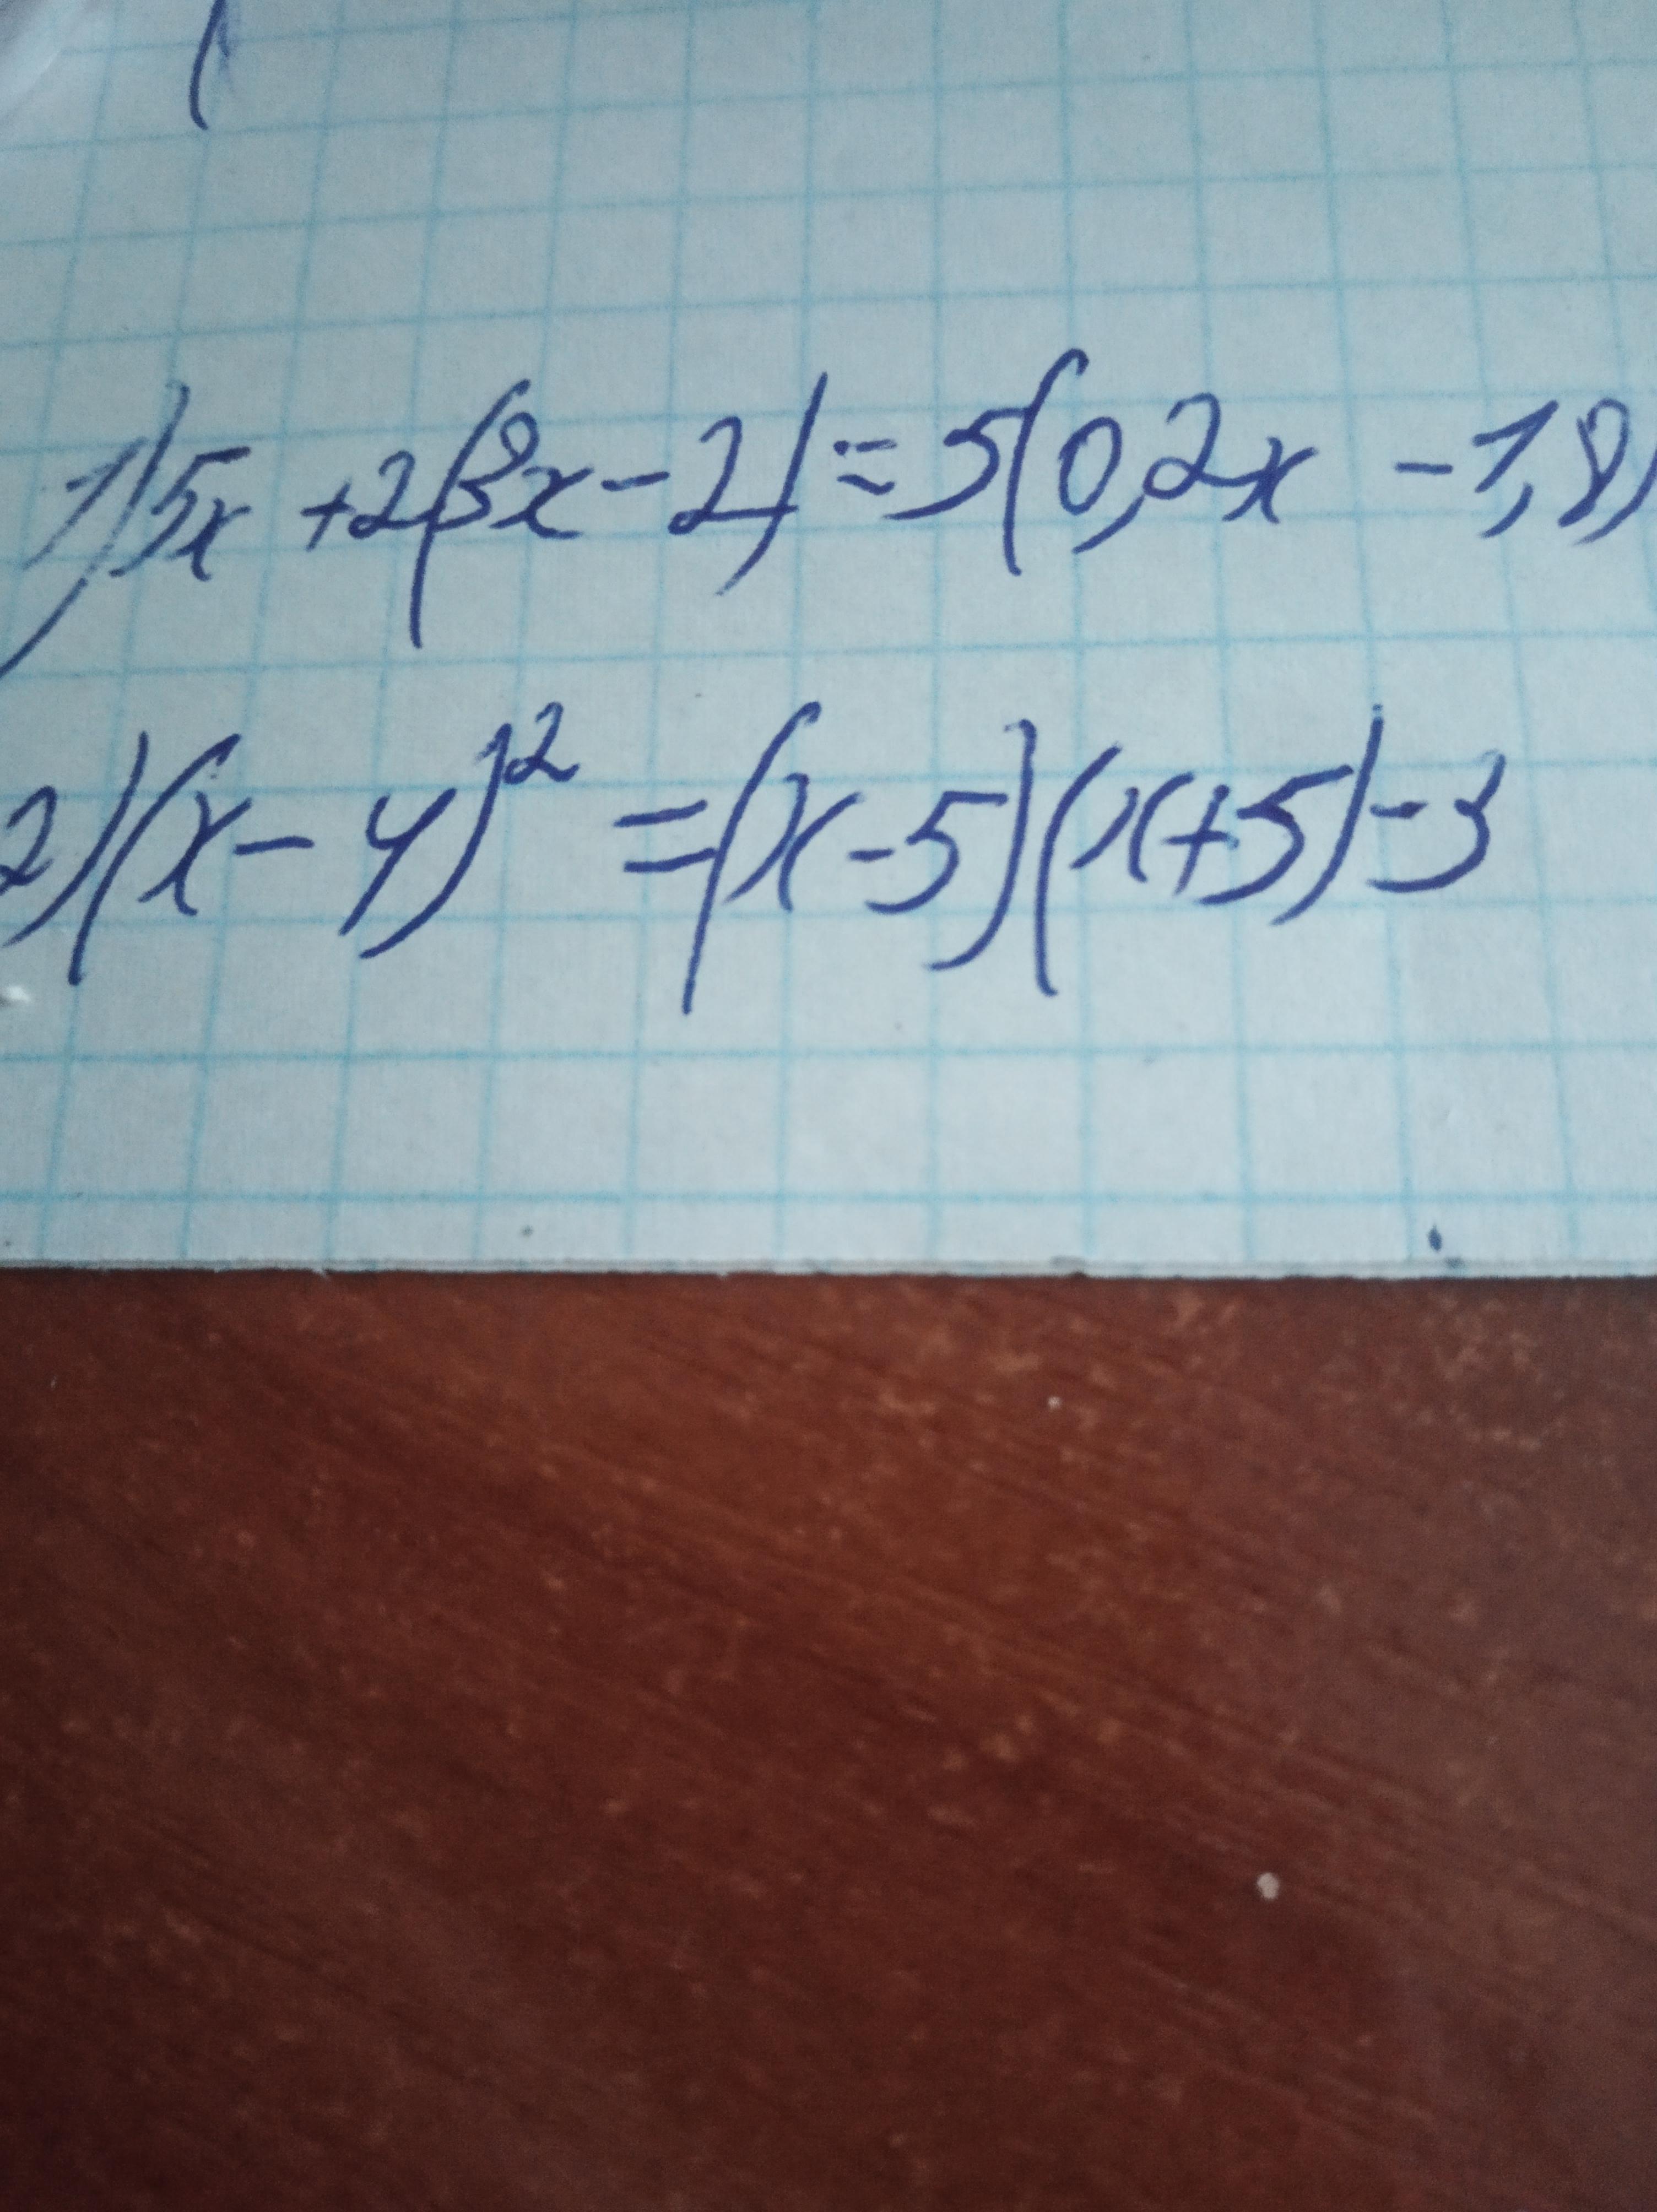 1) 5x + 2(3x - 2) = 5(0,2x - 1,8)
2) (x - 4)² = (x - 5)(x + 5) - 3